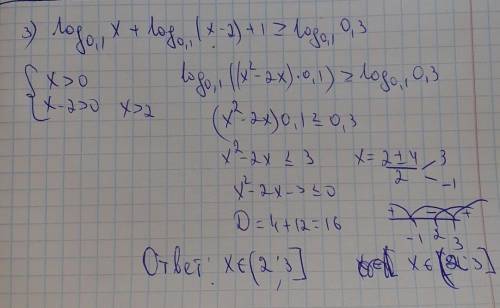 3) log₀,₁ x + log₀,₁ (x-2) + 1 ≥ log₀,₁ 0,3
{ x>0
x-2>0 x>2
log₀,₁ ((x²-2x)·0,1) ≥ log₀,₁ 0,3
(x²-2x)0,1 ≤ 0,3
x²-2x ≤ 3
x = (2±4)/2 3 -1
x²-2x-3 ≤ 0
D = 4+12 = 16
+ - +
-1 2 3
Ответ: x∈(2;3]
x∈(2;3]